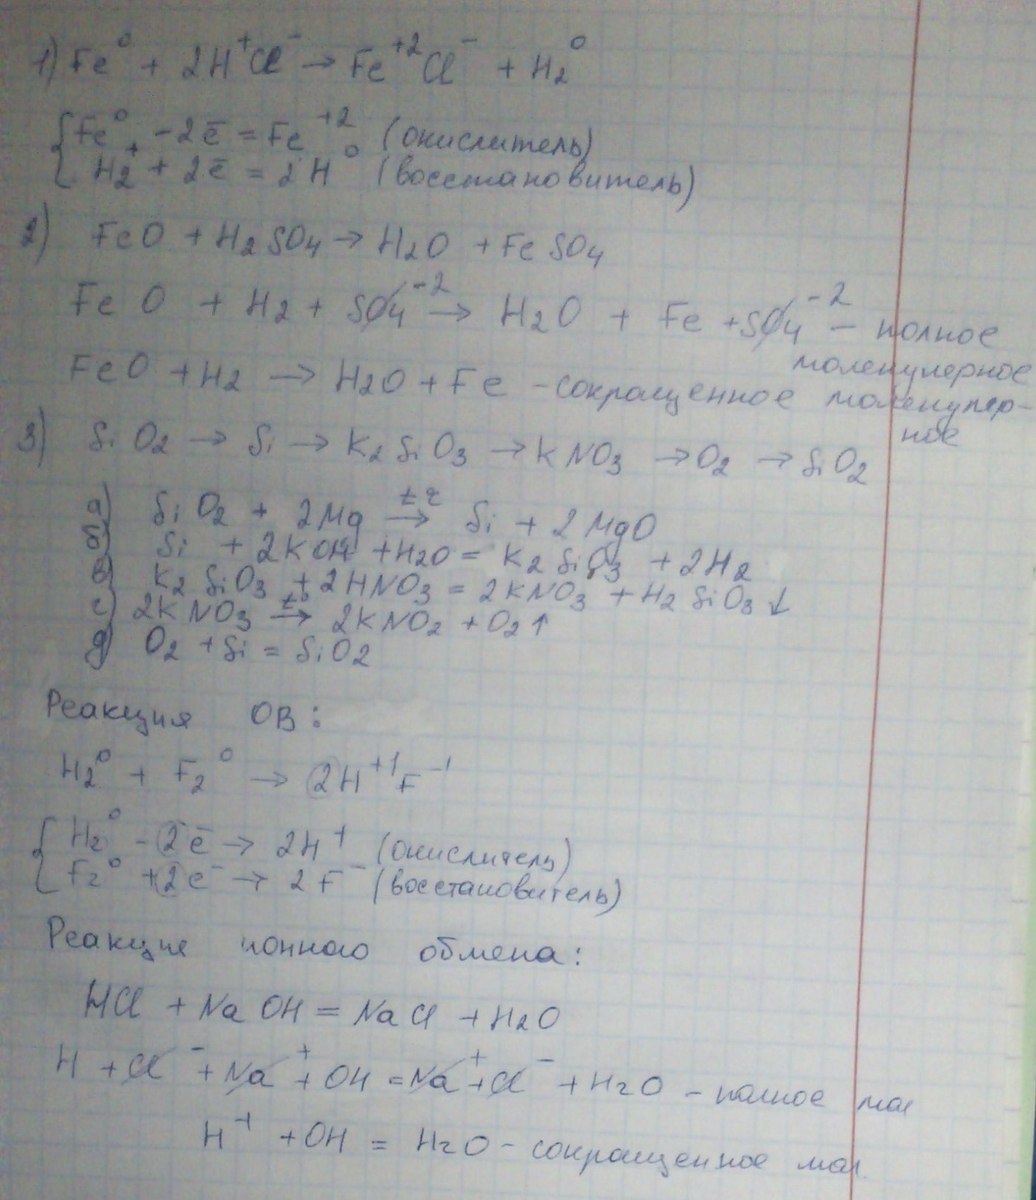 1) Fe⁰ + 2H⁺Cl⁻ → Fe⁺²Cl⁻ + H₂⁰
Fe⁰ - 2ē = Fe⁺² (окислитель)
H₂⁺ + 2ē = 2H⁰ (восстановитель)
2) FeO + H₂SO₄ → H₂O + FeSO₄
FeO + H₂ + SO₄⁻² → H₂O + Fe + SO₄⁻² – полное
молекулярное
FeO + H₂ → H₂O + Fe - сокращенное молекуляр-
ное
3) SiO₂ → Si → K₂SiO₃ → KNO₃ → O₂ → SiO₂
а) SiO₂ + 2Mg → Si + 2MgO
б) Si + 2KOH + H₂O = K₂SiO₃ + 2H₂
в) K₂SiO₃ + 2HNO₃ = 2KNO₃ + H₂SiO₃↓
с) 2KNO₃ → 2KNO₂ + O₂↑
д) O₂ + Si = SiO₂
Реакция ОВ:
H₂⁰ + F₂⁰ → 2H⁺¹F⁻¹
H₂⁰ - 2ē → 2H⁺ (окислитель)
F₂⁰ + 2e⁻ → 2F⁻ (восстановитель)
Реакция ионного обмена:
HCl + NaOH = NaCl + H₂O
H + Cl⁻ + Na⁺ + OH = Na⁺ + Cl⁻ + H₂O – полное мол
H⁺ + OH = H₂O - сокращенное мол.